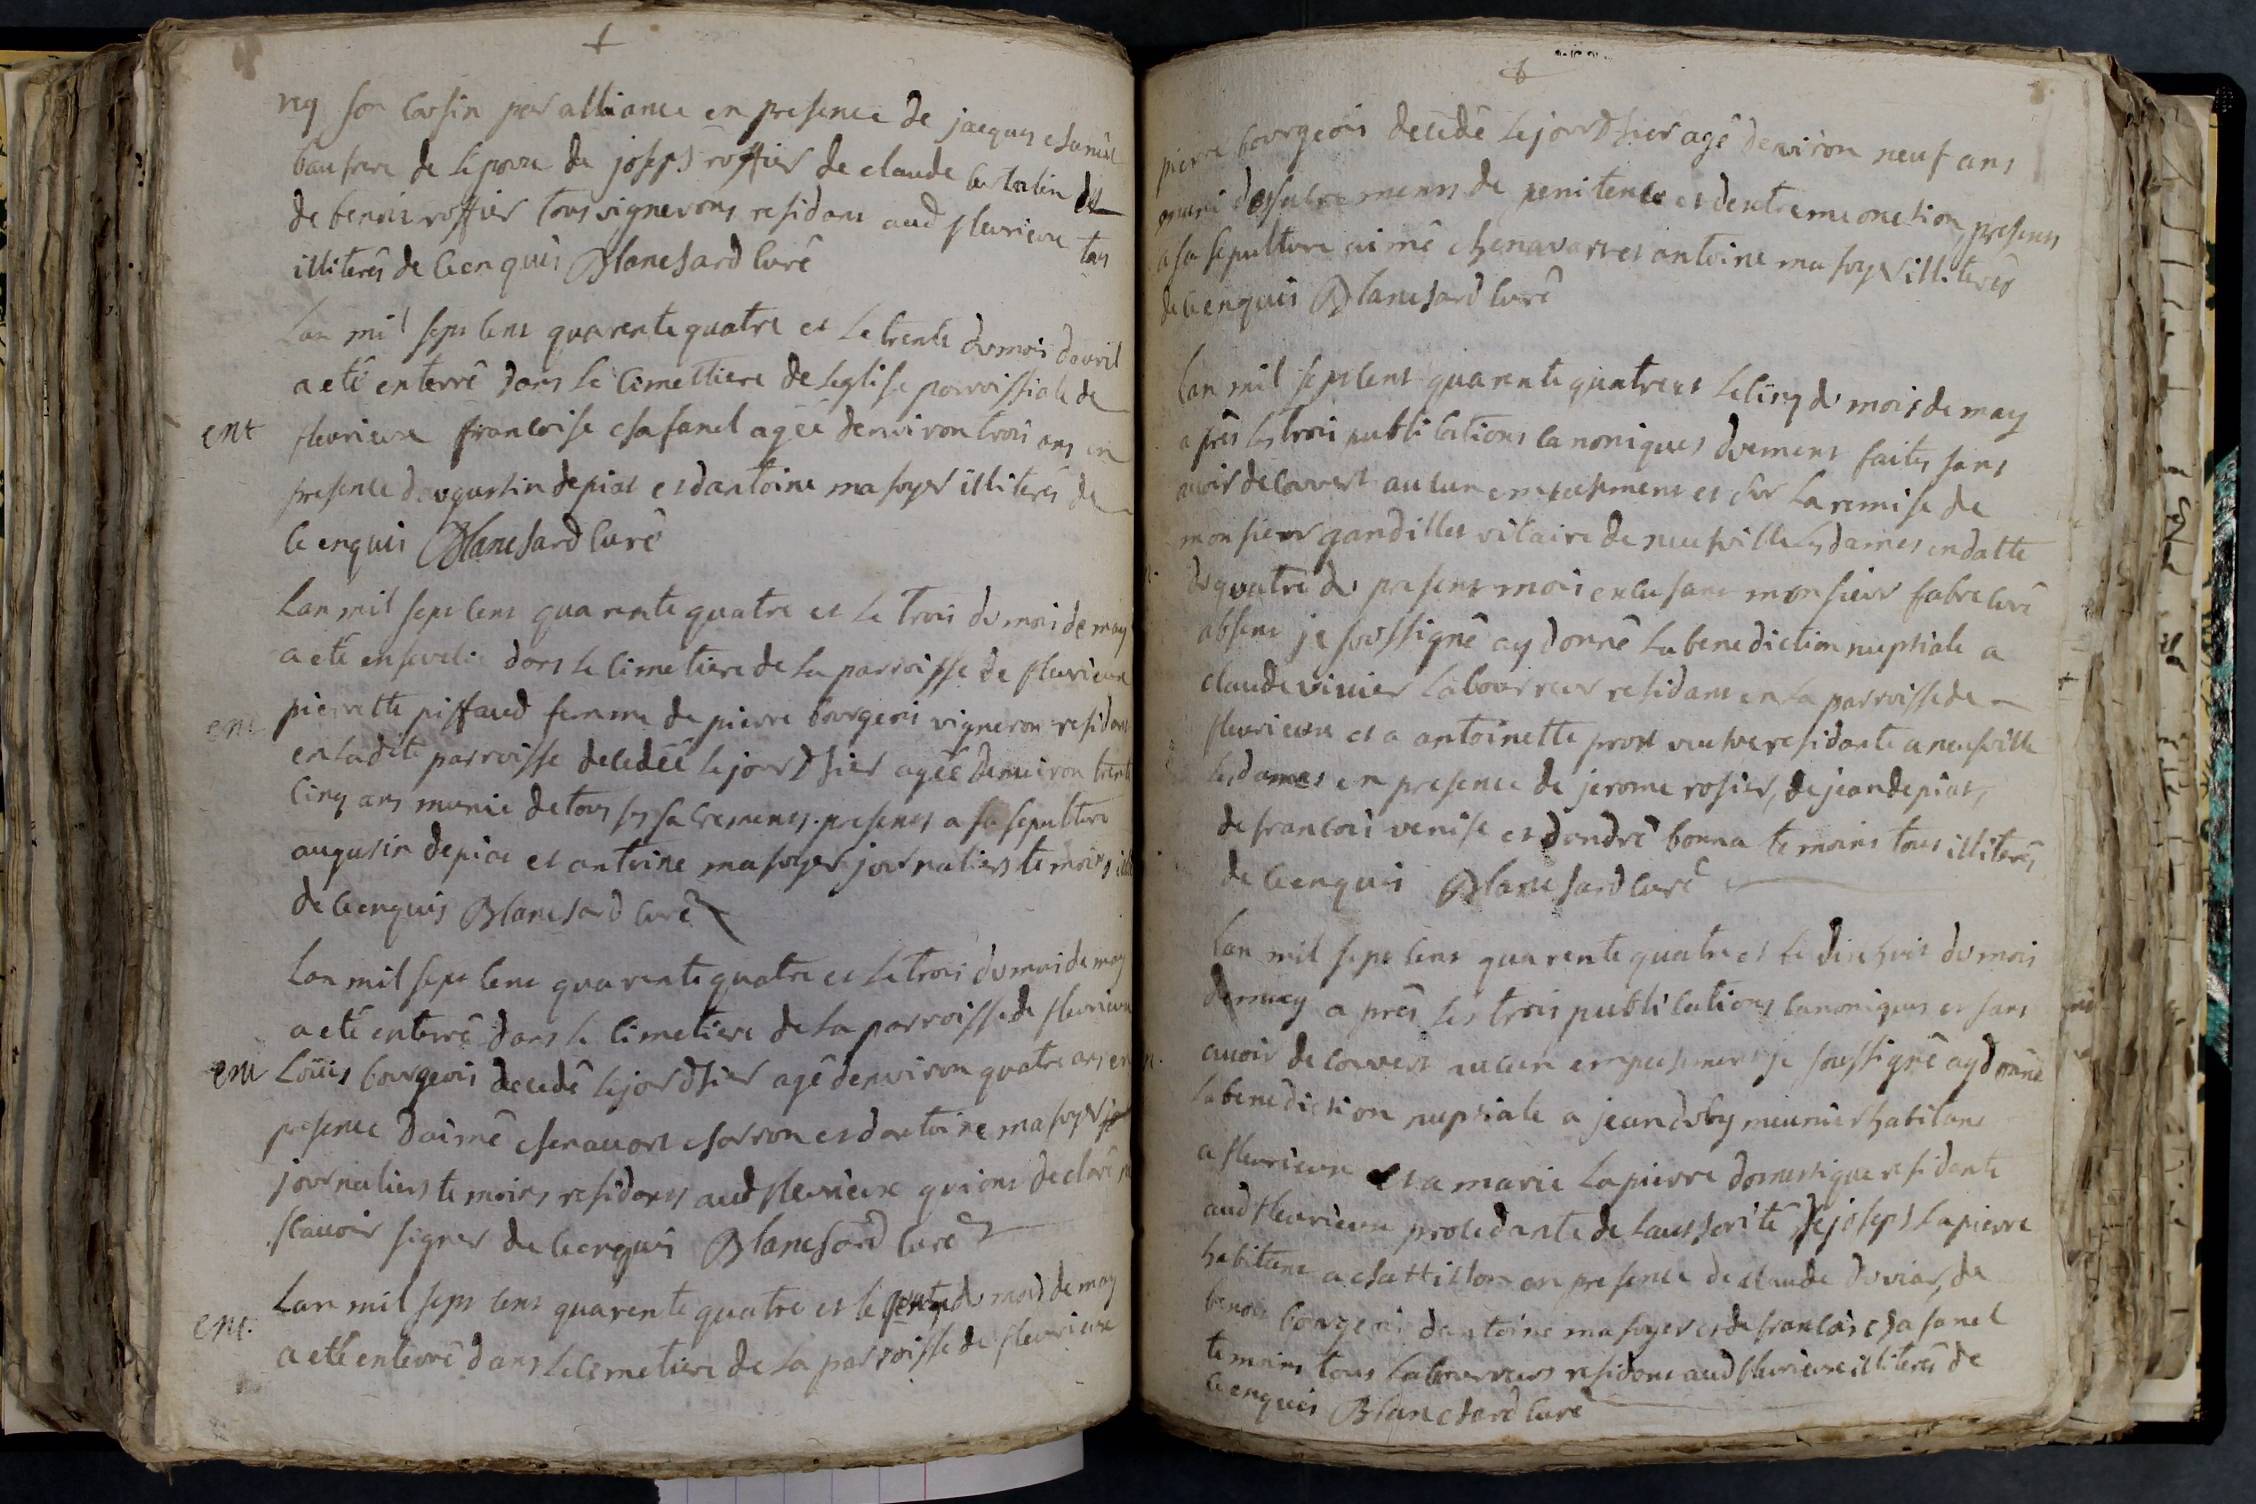 req son cousin par alliance en presence de jacques
baufrere de lepoux de joseph roffier de claude bertelin de
de benoit roffier tous vignerons residans aud fleurieux tous
illiterés de ce enquis Blanchard curé
Lan mil sept cent quarente quatre et le trente du mois davril
a eté enterré dans le cimettiere de leglise parroissiale de
ent fleurieux francoise chafanel agéé denviron trois ans en
presence daugustin depiat et dantoine mafoyer illiterés de
ce enquis Blanchard curé
Lan mil sept cent quarente quatre et le trois du mois de may
a eté ensevelie dans le cimetiere de la parroisse de fleurieux
ent pierrette piffaud femme de pierre bourgeois vigneron residant
en ladite parroisse decedéé le jour dhier agéé denviron trente
cinq ans munie de tous ses sacremens. presens a sa sepulture
augustin depiat et antoine mafoyer journaliers temoins
de ce enquis Blanchard curé
Lan mil sept cent quarente quatre et le trois du mois de may
a eté enterré dans le cimetiere de la parroisse de fleurieux
ent Loüis bourgeois decedé le jour dhier agé denviron quatre ans en
presence daimé chenavart charron et dantoine mafoyer
journaliers temoins residents aud fleurieux qui ont declaré ne
scavoir signer de ce enquis Blanchard curé
Lan mil sept cent quarente quatre et le du mois de may
ent. a eté enterré dans le cimetiere de la parroisse de fleurieux
pierre bourgeois decedé le jour dhier agé denviron neuf ans
muni des sacremens de penitence et dextreme onction, presens
a sa sepulture aimé chenavart et antoine mafoyer illiterés
de ce enquis Blanchard curé
Lan mil sept cent quarente quatre et le cinq du mois de may
aprés les trois publications canoniques duement faites sans
avoir decouvert aucun empechement et sur la remise de
monsieur gandillet vicaire de neufville les dames en datte
du quatre du present mois en lu sans monsieur fabre curé
absent je soussigné ay donné la benediction nuptiale a
claude vivier laboureur residant en la parroisse de
fleurieux et a antoinette prost veufve residante a neufville
les dames en presence de jerome rosier, de jean depiat,
de francois venise et dandré bonna temoins tous illiterés
de ce enquis Blanchard curé
Lan mil sept cent quarente quatre et le dix huit du mois
de may aprés les trois publications canoniques et sans
avoir decouvert aucun empechement je soussigné ay donné
la benediction nuptiale a jean meunier habitant
a fleurieux et a marie Lapierre domestique residante
aud fleurieux procedante de lauthorité de joseph Lapierre
habitant a chattillon en presence de claude duviar, de
benoit bourgeois dantoine mafoyer et de francois chafanel
temoins tous laboureurs residans aud fleurieux illiterés de
ce enquis Blanchard curé